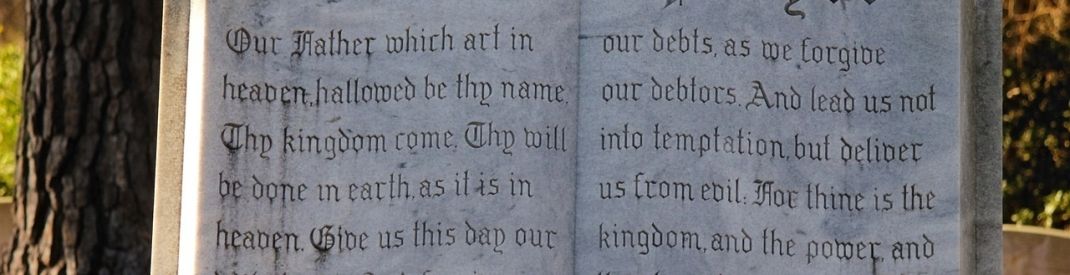 Our Father which art in
heaven, hallowed be thy name.
Thy kingdom come. Thy will
be done in earth, as it is in
heaven. Give us this day our
our debts, as we forgive
our debtors. And lead us not
into temptation, but deliver
us from evil: For thine is the
kingdom, and the power, and